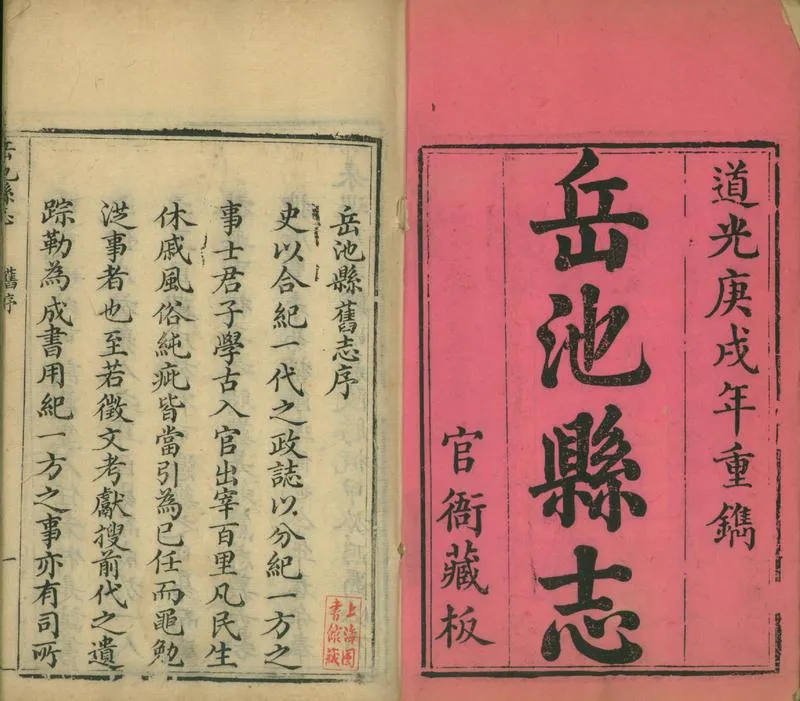 道光庚戌年重鐫
岳池縣志
官衙藏板
岳池縣舊志序
史以合紀一代之政誌以分紀一方之
事士君子學古入官出宰百里凡民生
休戚風俗純疵皆當引為已任而黽勉
從事者也至若徵文考獻搜前代之遺
踪勒為成書用紀一方之事亦有司所
岳池縣志
舊序
一
上海圖
書館藏